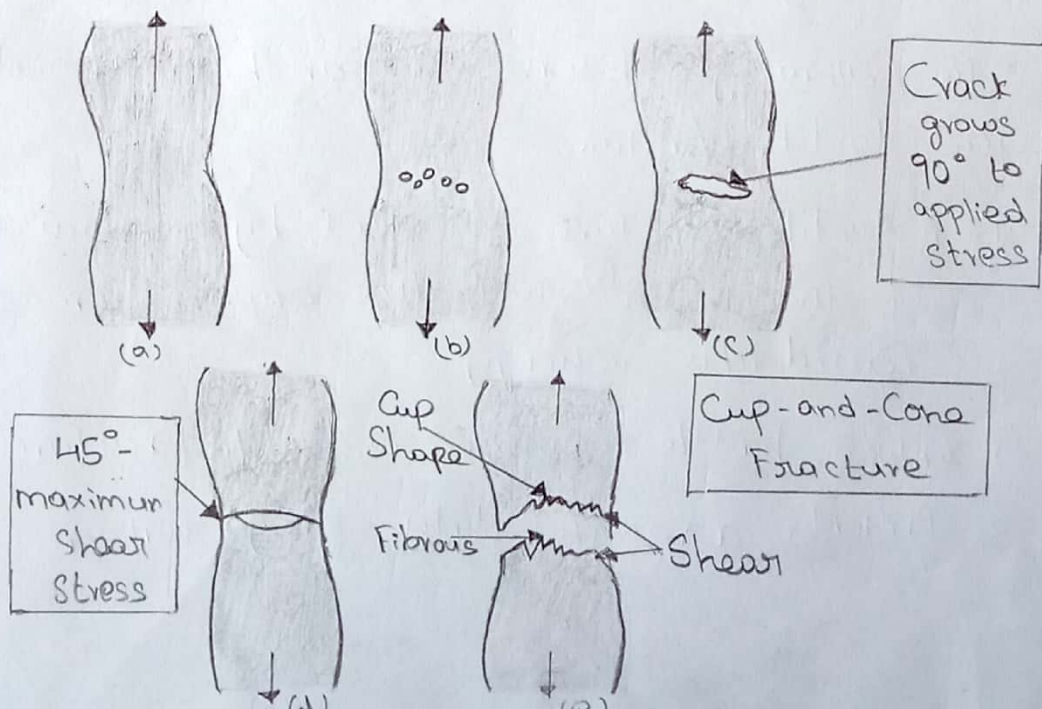 (a)
(b)
(c)
Crack
grows
90° to
applied
stress
45°-
maximum
Shear
Stress
(d)
Cup
Shape
Fibrous
Shear
(e)
Cup-and-Cone
Fracture